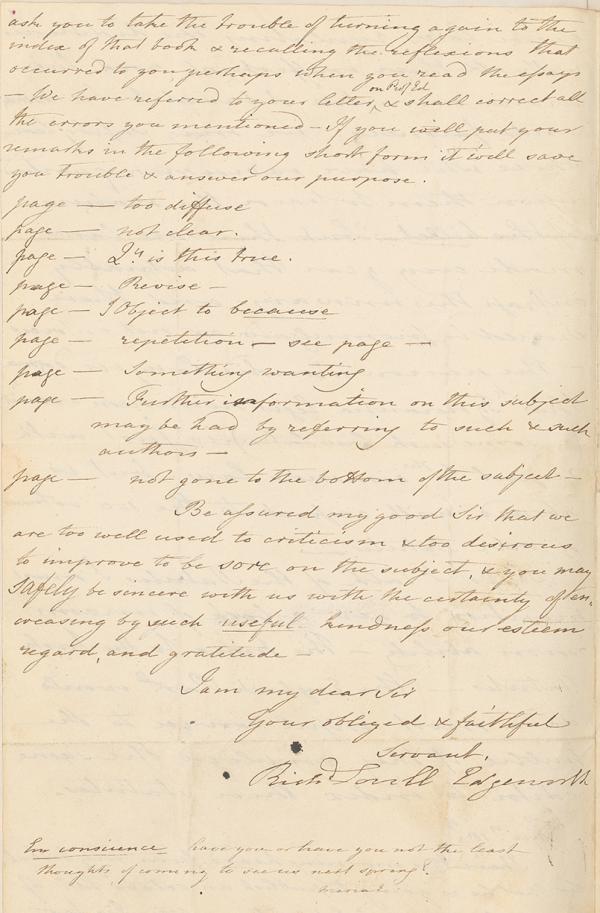 ask you to take the trouble of turning again to the
index of that book & recalling the reflexions that
occurred to you perhaps when you read the essays
on Prof! Ed
— We have referred to your letter, & shall correct all
the errors you mentioned — If you will put your
remarks in the following short form it will save
you trouble & answer our purpose.
page — too diffuse
page — not clear.
page — Qy is this true.
page — Revise —
page — I Object to because
page — repetition — see page —
page — Something wanting
page — Further information on this subject
may be had by referring to such & such
authors —
page — not gone to the bottom of the subject —
Be assured my good Sir that we
are too well used to criticism & too desirous
to improve to be sore on the subject, & you may
safely be sincere with us with the certainty of en,
creasing by such useful kindness our esteem
regard, and gratitude —
I am my dear Sir
Your obliged & faithful
Servant.
Richd Lovell Edgeworth
En conscience have you or have you not the least
thoughts of coming to see us next spring?
Maria E